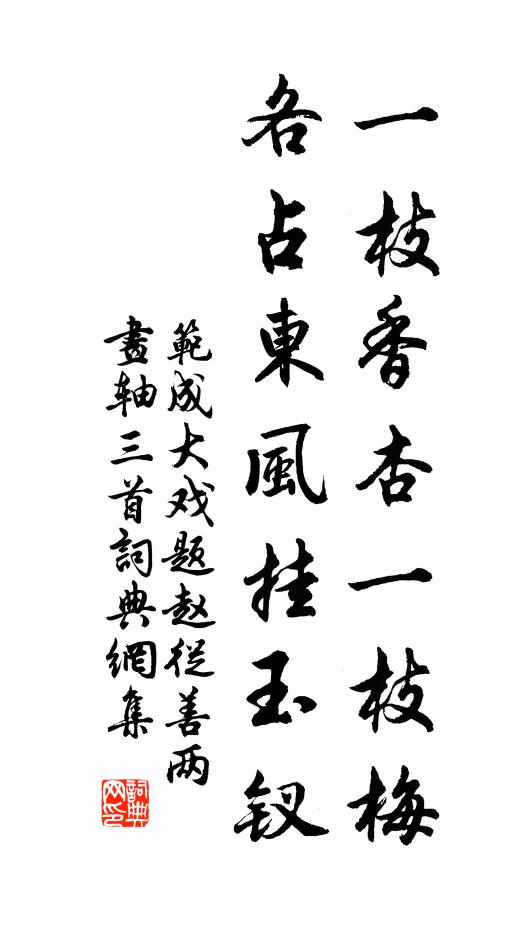 一枝香杏一枝梅
各占東風挂玉釵
範成大戏题赵從善两
畫轴三首詞典網集
詞典网印